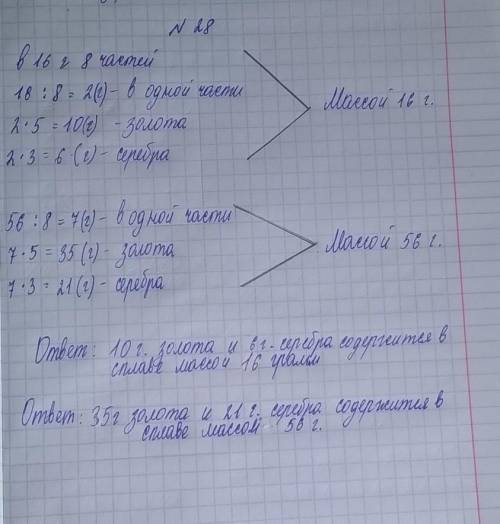 N 28
в 16 г 8 частей
16 : 8 = 2(г) - в одной части
2·5 = 10(г) - золота
2·3 = 6·(г) - серебра
Массой 16 г.
56 : 8 = 7(г) - в одной части
7·5 = 35(г) - золота
7·3 = 21(г) - серебра
Массой 56 г.
Ответ: 10 г. золота и 6 г. серебра содержится в
сплаве массой 16 грамм
Ответ: 35г золота и 21 г. серебра содержится в
сплаве массой 56 г.